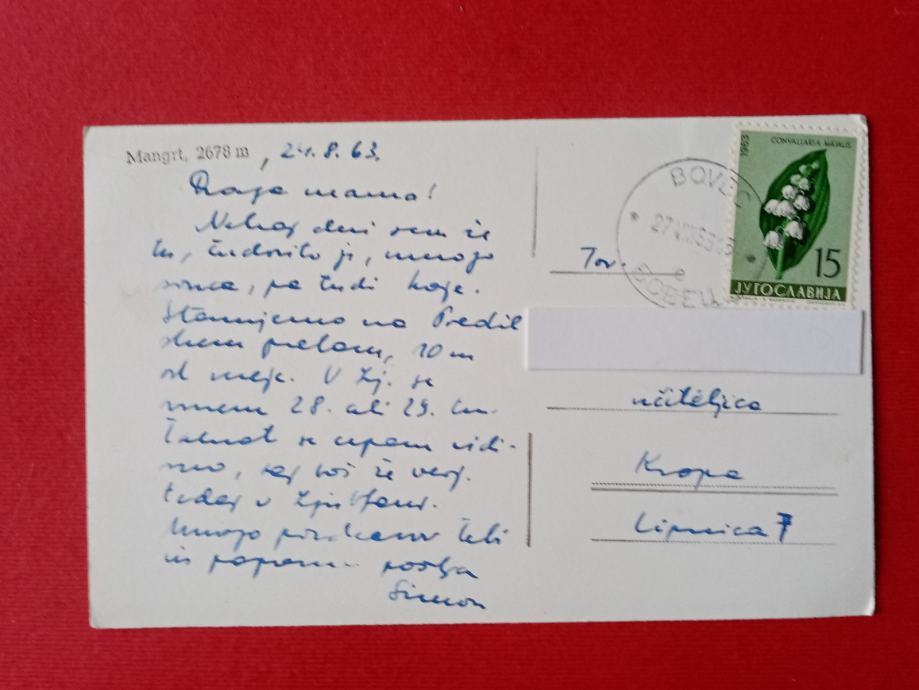 Mangrt, 2678 m, 24.8.63.
Draga mama!
Nekaj dni sem že
tu, čudovito je, mnogo
sonca, pa tudi koče.
Stanujemo na Predil
skem prelazu, 10 m
od meje. V Lj. se
vrnem 28. ali 29. tm.
Takrat se upam vidi-
mo, saj boš že verj.
tedaj v Ljubljani.
Mnogo pozdravov Tebi
in papanu pošilja
Simon
BOVEC
27.VIII.63
1963
CONVALLARIA MAJALIS
15
ЈУГОСЛАВИЈА
Tov.
učiteljica
Kropa
Lipnica 7